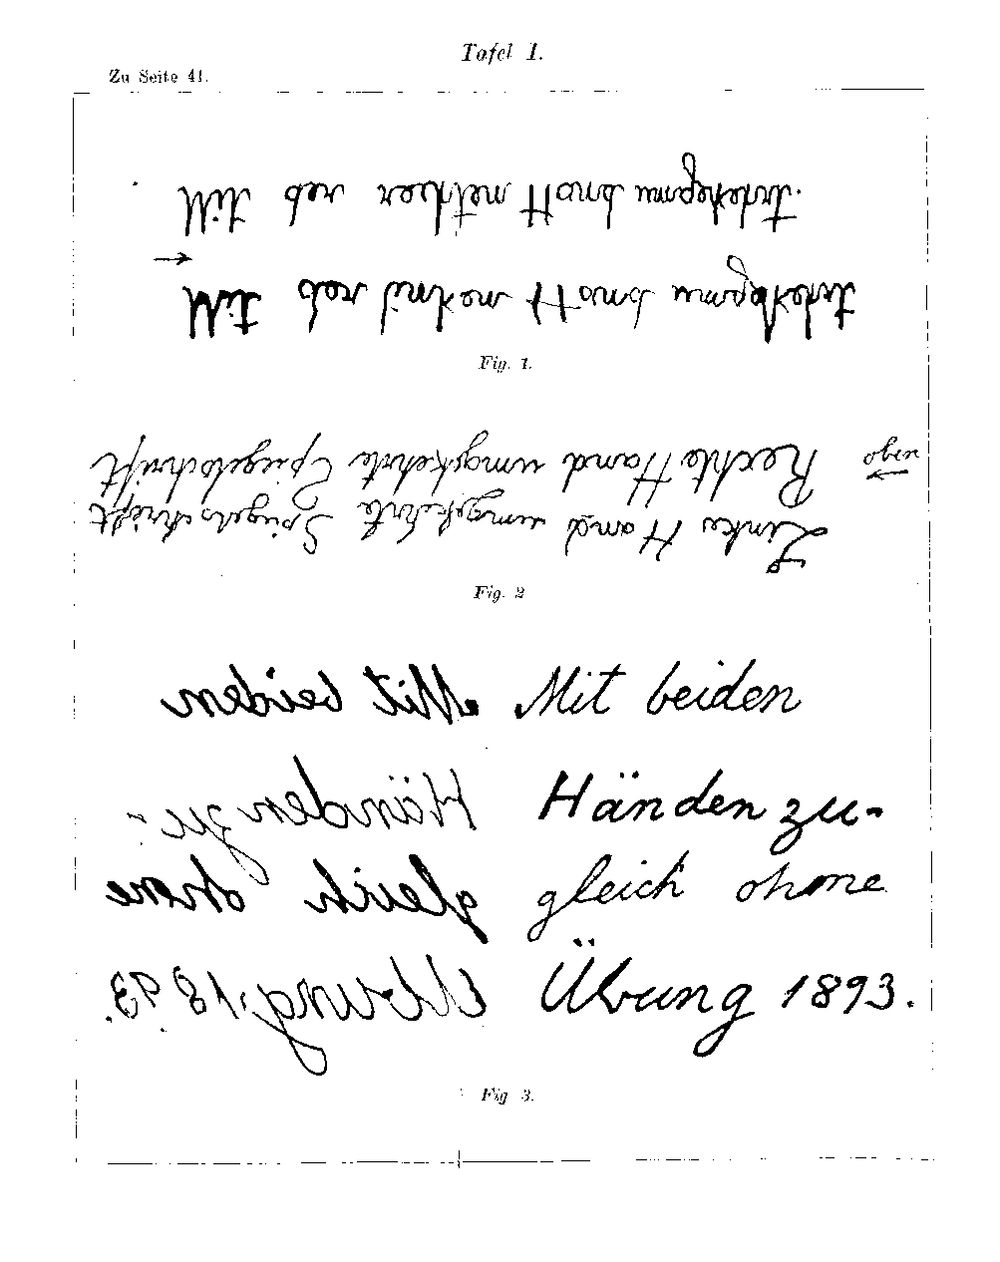 Tafel I.
Zu Seite 41.
Mit der rechten Hand umgekehrt.
Mit der linken Hand umgekehrt
Fig. 1.
oben
Rechte Hand umgekehrte Spiegelschrift
Linke Hand umgekehrte Spiegelschrift
Fig. 2
Mit beiden Mit beiden
Händen zu- Händen zu-
gleich ohne gleich ohne
Übung 1893. Übung 1893.
Fig 3.